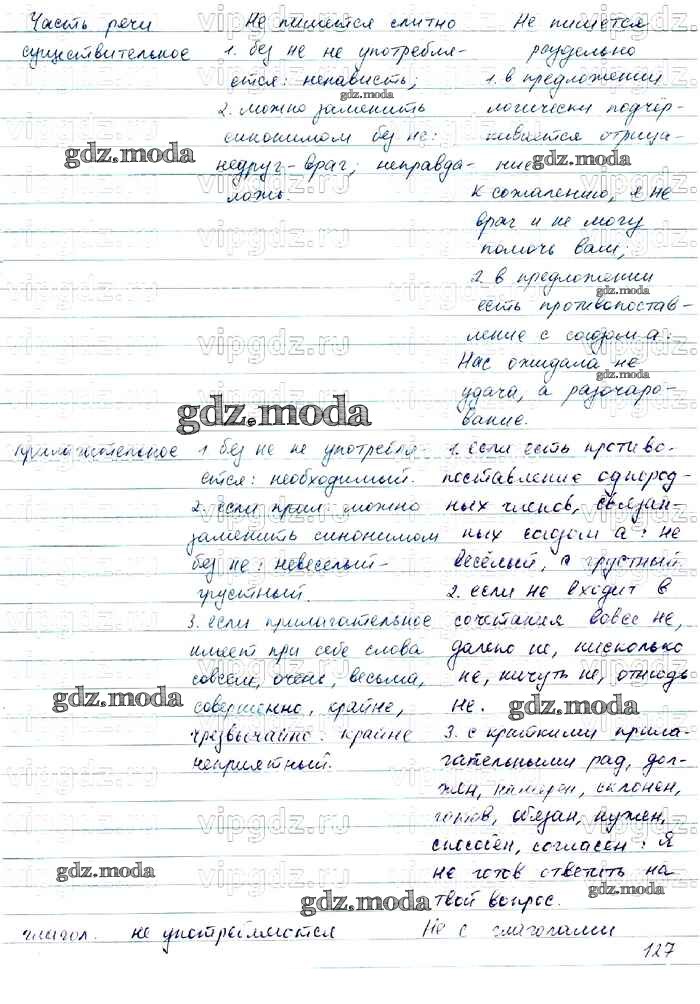 Часть речи Не пишется слитно Не пишется
существительное 1. без не не употребля- раздельно
ется: ненависть; 1. в предложении
2. можно заменить логически подчёр-
синонимом без не: кивается отрица-
недруг - враг; неправда- ние:
ложь. К сожалению, я не
враг и не могу
помочь вам;
2. в предложении
есть противопостав-
ление с союзом а:
Нас ожидала не
удача, а разочаро-
вание.
прилагательное 1 без не не употребля- 1. если есть противо-
ется: необходимый. поставление однород-
2. если прил. можно ных членов, связан-
заменить синонимом ных союзом а: не
без не: невеселый- весёлый, а грустный
грустный. 2. если не входит в
3. если прилагательное сочетания вовсе не,
имеет при себе слова далеко не, нисколько
совсем, очень, весьма, не, ничуть не, отнюдь
совершенно, крайне, не.
чрезвычайно: крайне 3. с краткими прила-
неприятный. гательными рад, дол-
жен, намерен, склонен,
готов, обязан, нужен,
способен, согласен: Я
не готов ответить на
твой вопрос.
глагол. не употребляются Не с глаголами
127
gdz.moda
vipgdz.ru